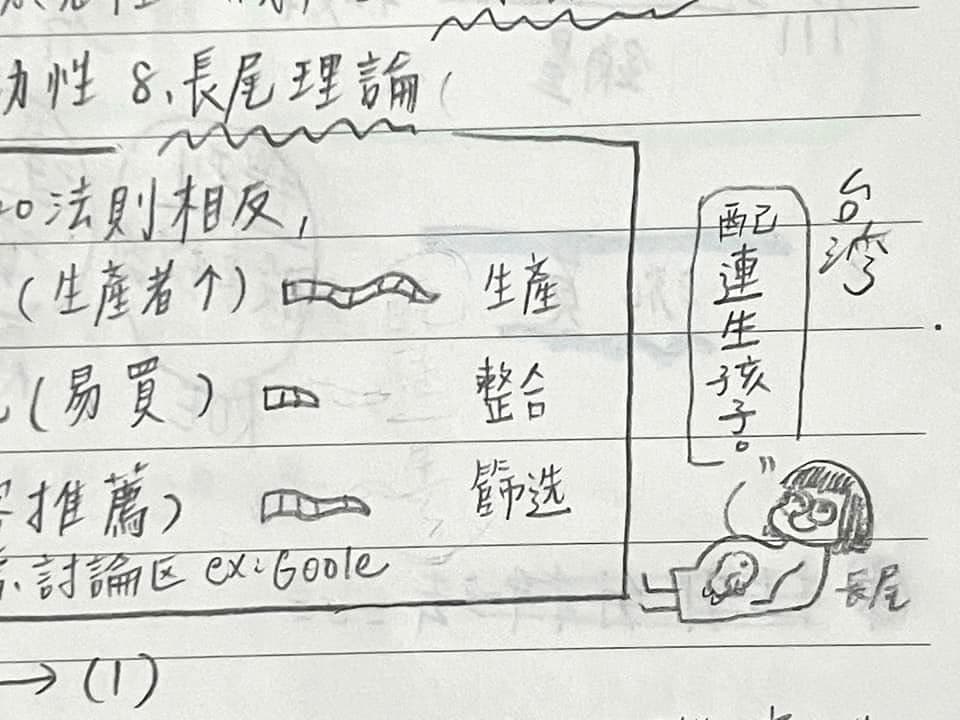 力性 8、長尾理論(
20法則相反，
(生產者个) 生產
(易買) 整合
推薦) 篩选
討論区 ex:Goole
→(1)
台灣
配連生孩子。
長尾